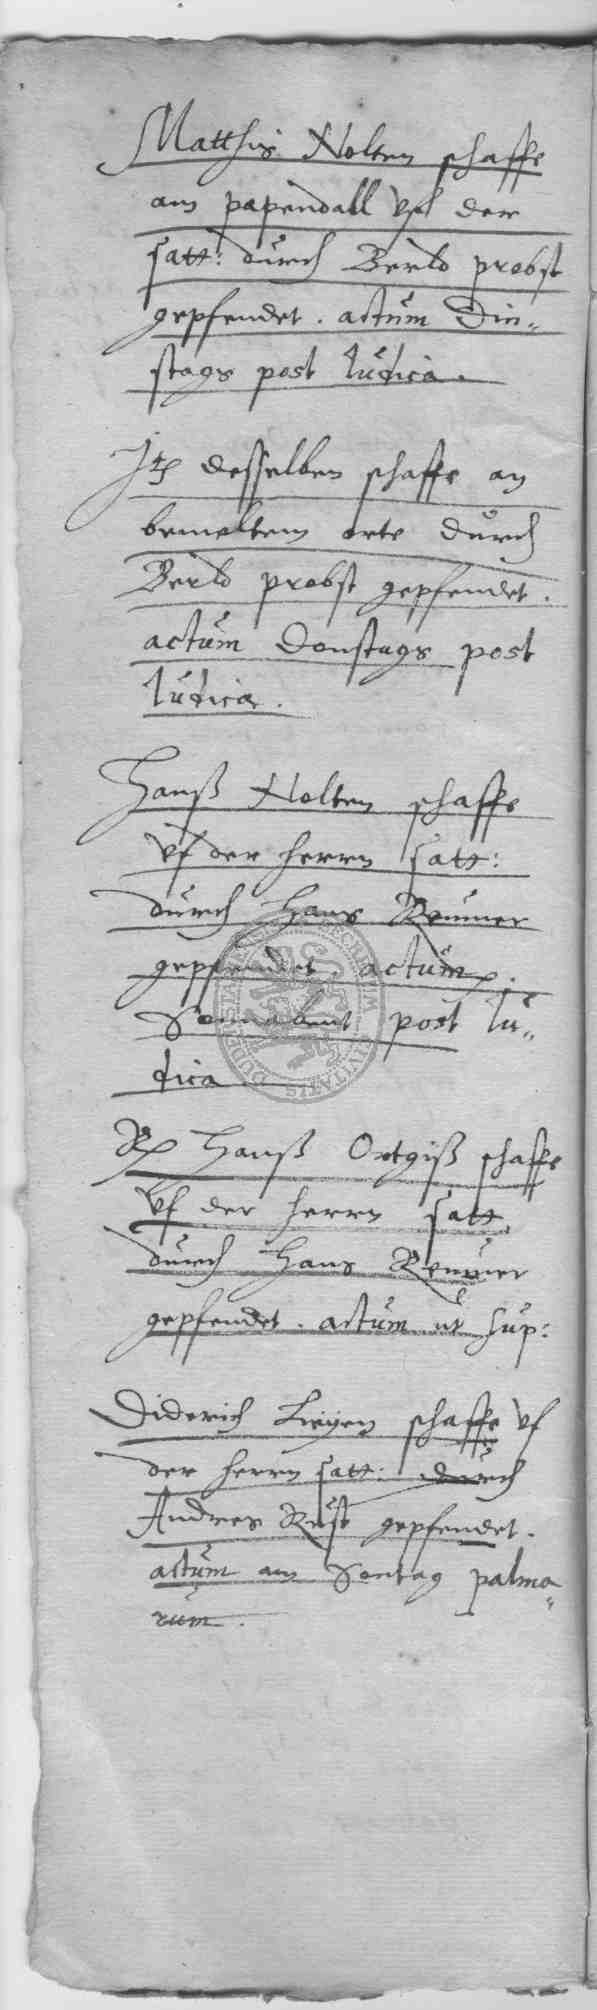 Matthis Nolten schaffe
am papendall vf der
satt: durch Berld probst
gepfendet. actum Din-
stags post Judica.
It desselben schaffe an
bemeltem orte durch
Berld probst gepfendet.
actum Donstags post
Judica.
Hanß Nolten schaffe
vf der herrn satt:
durch Hans Reumer
gepfendet. actum
Sonnabent post Ju-
dica
Hanß Ortgiß schaffe
vf der herrn satt
durch Hans Reumer
gepfendet. actum ut sup:
Diderich schaffe vf
der herrn satt: durch
Andres Rust gepfendet.
actum am Sontag palma-
rum.
SECRETUM CIVITATIS DUDERSTAD